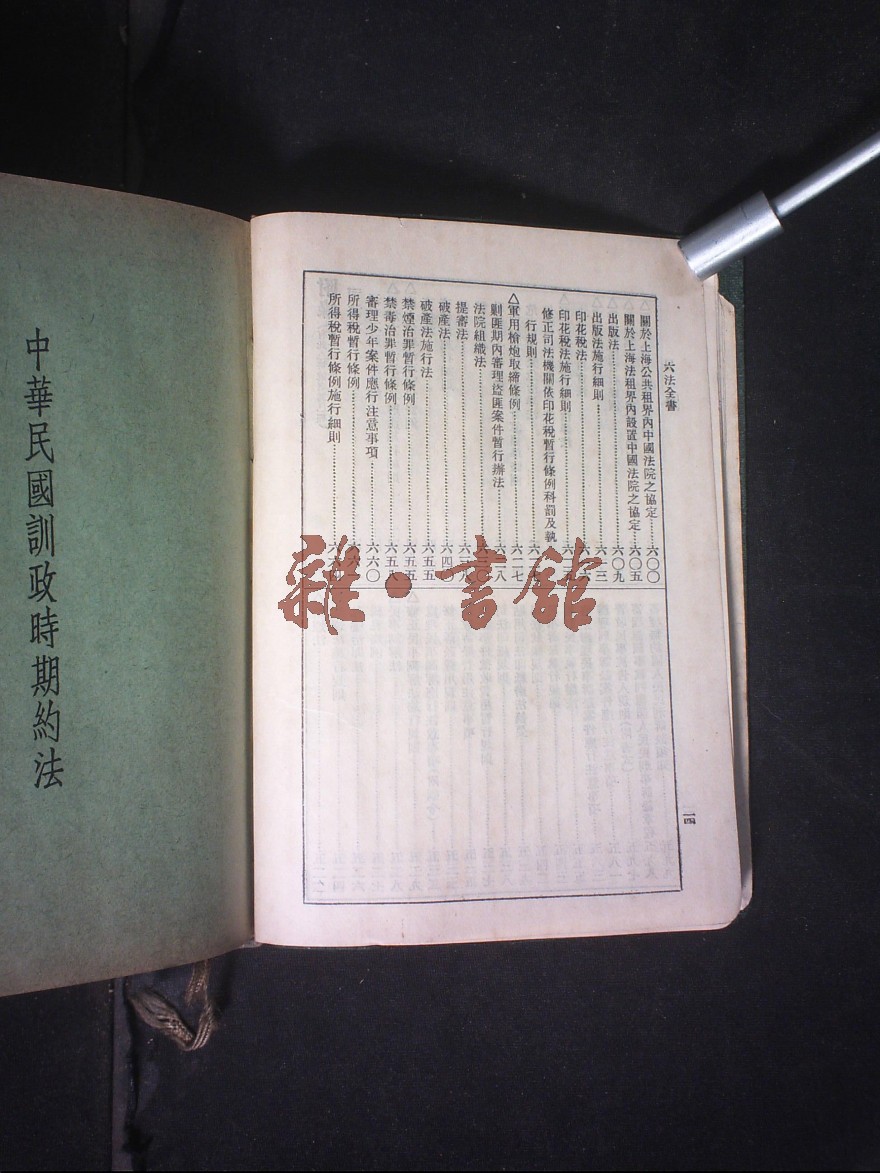 六法全書
關於上海公共租界內中國法院之協定……六〇〇
△關於上海法租界內設置中國法院之協定……六〇五
△出版法……六〇九
出版法施行細則……六一三
印花稅法
△印花稅法施行細則
修正司法機關依印花稅暫行條例科罰及執
行規則
△軍用槍炮取締條例……六二七
剿匪期內審理盜匪案件暫行辦法
法院組織法
提審法
破產法……六四〇
破產法施行法……六五五
△禁煙治罪暫行條例……六五五
禁毒治罪暫行條例……六五八
審理少年案件應行注意事項……六六〇
所得稅暫行條例
所得稅暫行條例施行細則
一四
中華民國訓政時期約法
雜·書館